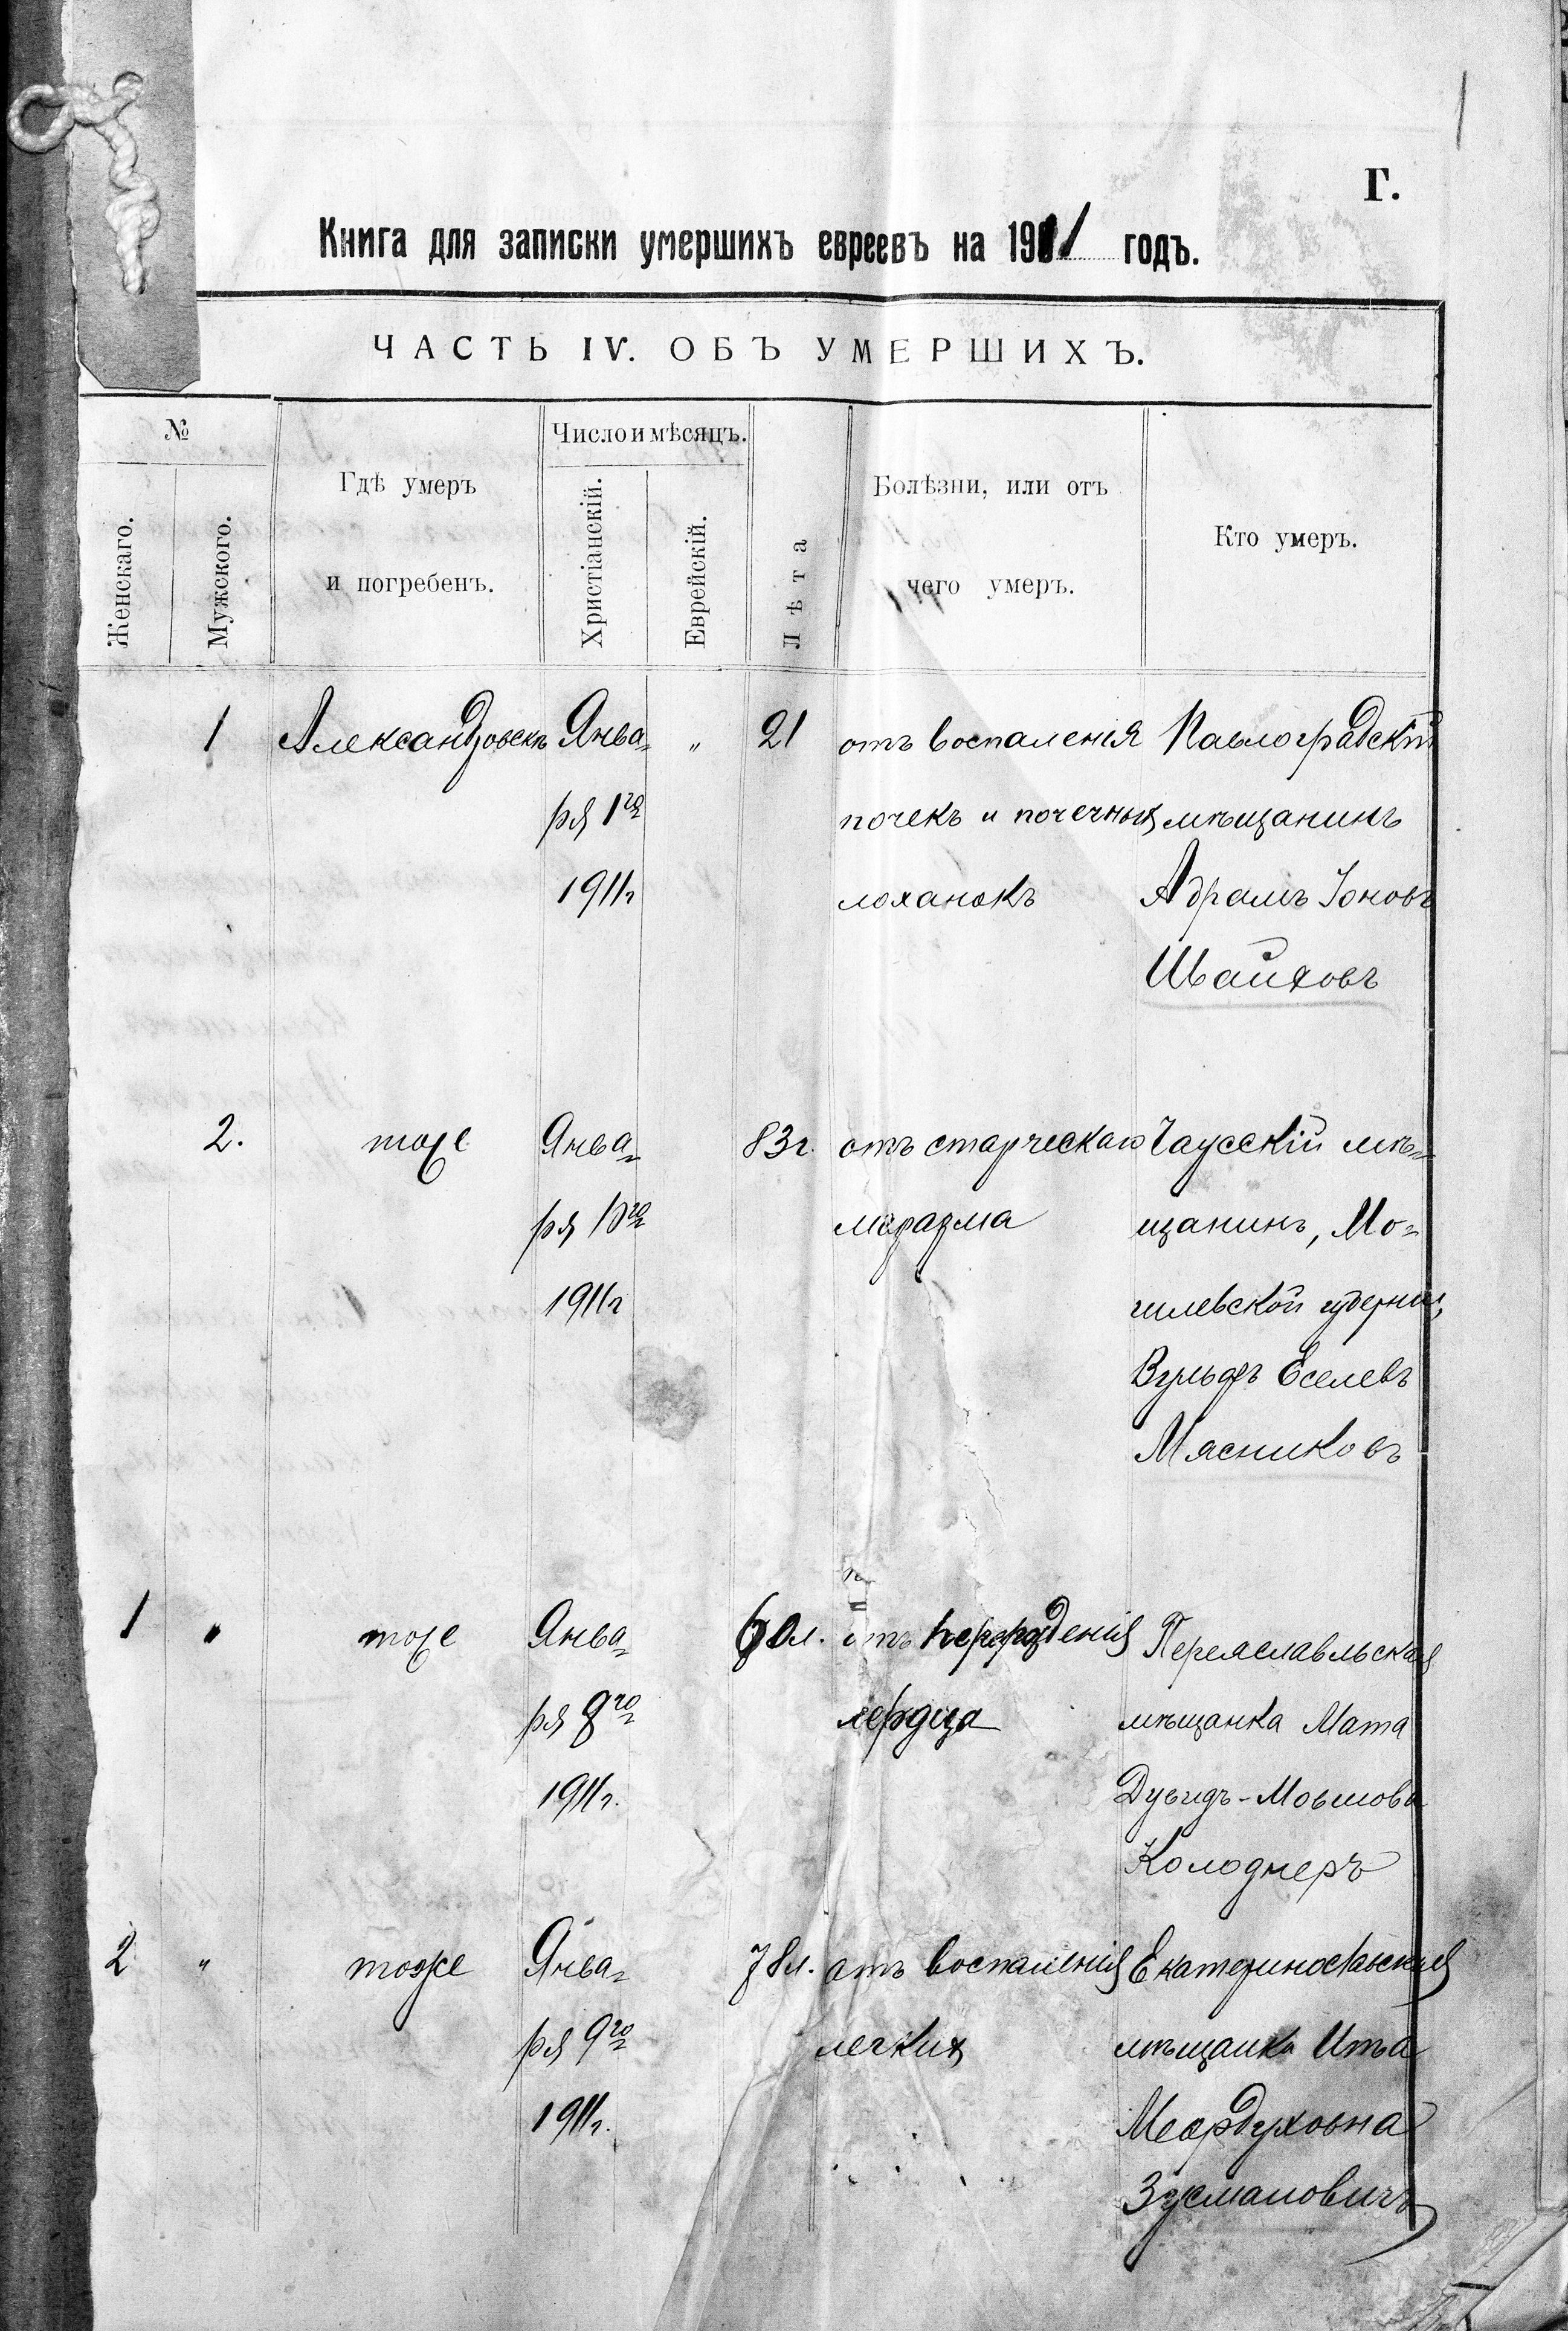 Г.
Книга для записки умершихъ евреевъ на 1911 годъ.
ЧАСТЬ IV. ОБЪ УМЕРШИХЪ.
№
Женскаго.
Мужского.
Гдѣ умеръ
и погребенъ.
Число и мѣсяцъ.
Христіанскій.
Еврейскій.
Лѣта
Болѣзни, или отъ
чего умеръ.
Кто умеръ.
1 Александровскъ Янва= " 21 отъ воспаленія Павлоградскій
ря 1го почекъ и почечныхъ мѣщанинъ
1911г лоханокъ Абрамъ Іоновъ
Швайховъ
2. тоже Янва= 83г. отъ старческаго Чаусскій мѣ=
ря го маразма щанинъ, Мо=
1911г гилевской губерніи,
Вульфъ Еселевъ
Мясниковъ
1 " тоже Янва= 60л. отъ перерожденія Переяславльская
ря 8го сердца мѣщанка Мата
1911г. Дувидъ-Мовшова
Колоднеръ
2 " тоже Янва= 78л. отъ воспаленія Екатеринославская
ря 9го легкихъ мѣщанка Ита
1911г. Мордуховна
Зусмановичъ